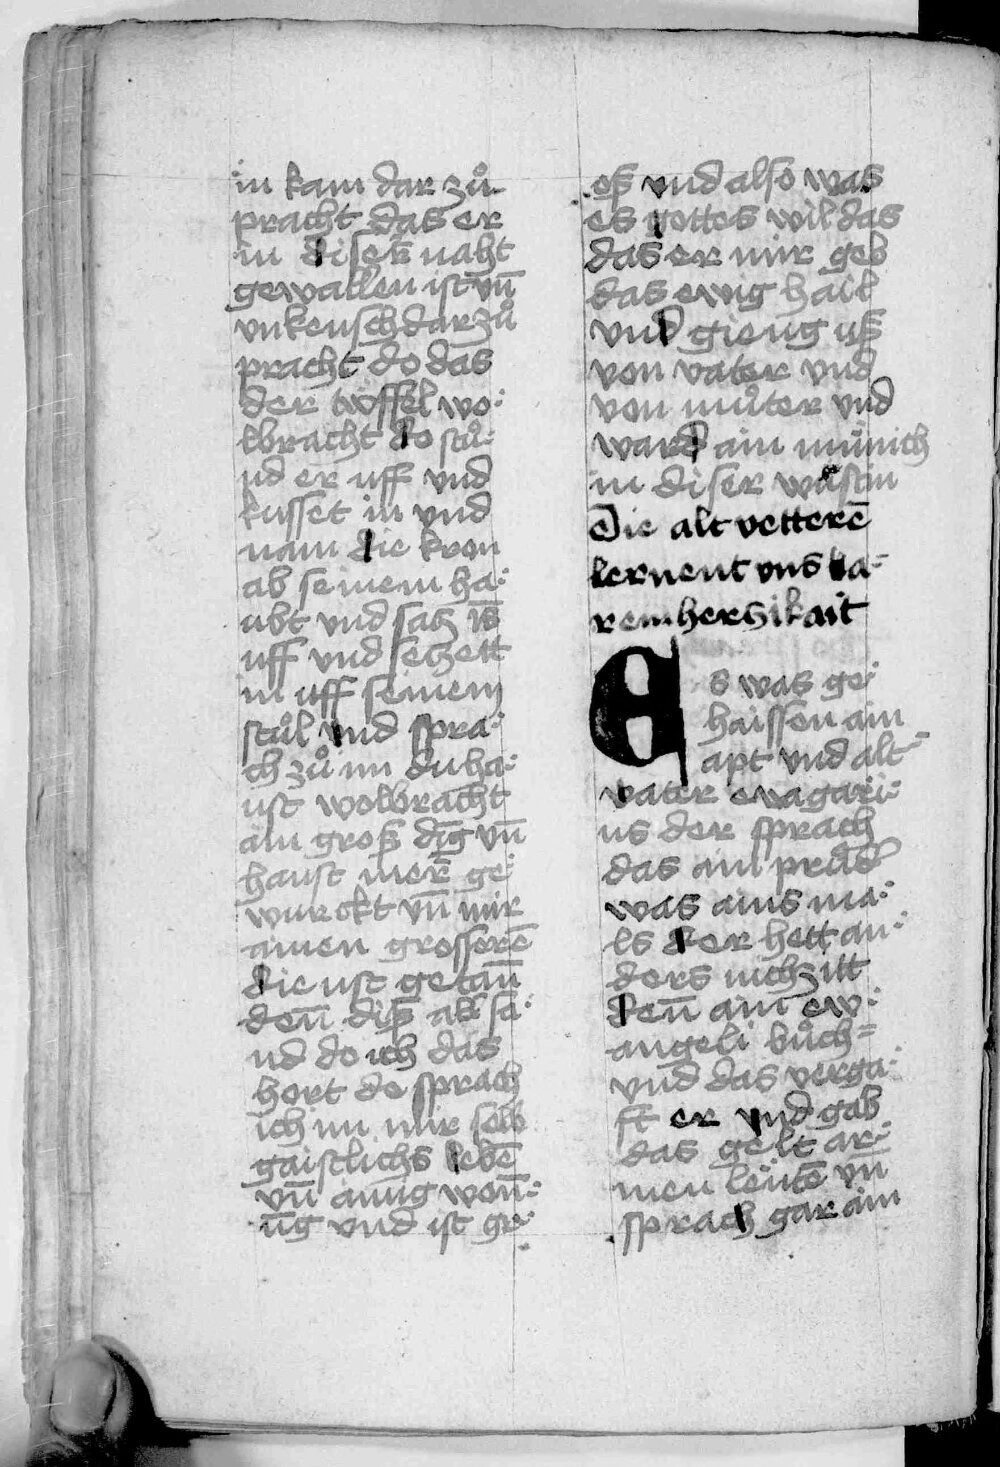 in kam dar zuͦ
pracht das er
in diser naht
gewallen ist vn̄
vnkeusch dar zuͦ
pracht do das
der töffel vo-
lbracht do stuͦ-
nd er uff vnd
kusset in vnd
nam die kron
ab seinem ha-
ubt vnd satz is̄
uff vnd setzett
in uff seinem
stuͦl vnd spra-
ch zuͦ im du ha-
ust wolbracht
ain groß dīg vn̄
haust merē ge-
wurckt vn̄ mir
ainen grosserē
die nst getan̄
den̄ diß all sa-
nd do ich das
hort do sprach
ich im mir selb
gaistlichs lebē
vn̄ ainig won̄-
ūg vnd ist gr-
oß vnd also was
es gottes wil das
das er mir geb
das ewig hail
vnd gieng uß
von vater vnd
von muͦter vnd
ward ain münich
in diser wüstin
Die alt vetterē
lernent vns ba-
remhertzikait
Es was ge-
haissen ain
apt vnd alt-
vater ewagari-
us der sprach
das ain pruͦd͛
was ains ma-
ls der hett an-
ders nichtz itt
den̄ ain ew-
angeli buͦch
vnd das verga-
ft er vnd gab
das gelt ar-
men leütē vn̄
sprach gar ain